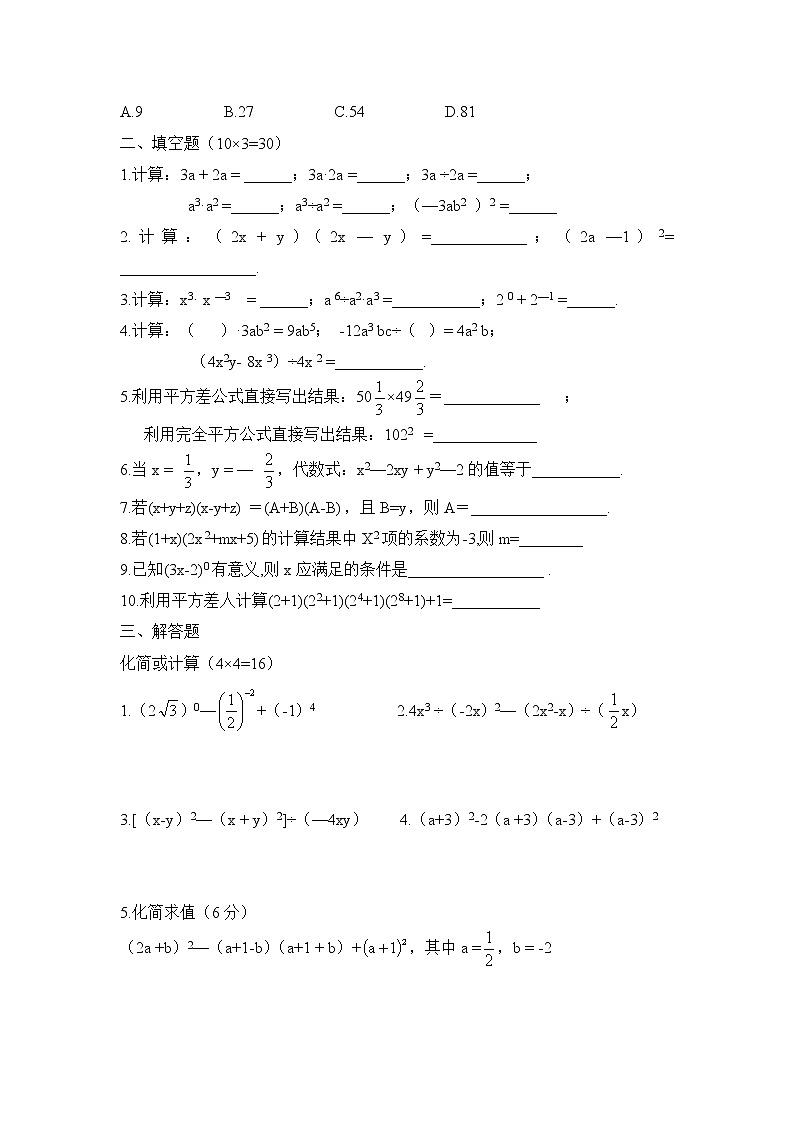 A.9 B.27 C.54 D.81
二、填空题（10×3=30）
1.计算：3a + 2a = ______；3a·2a =______；3a ÷2a =______；
a³·a² =______；a³÷a² =______；（—3ab² ）² =______
2.计算：（2x + y）（2x — y）=____________；（2a —1）²=
_________________.
3.计算：x³· x⁻³ = ______；a⁶÷a²·a³ =___________；2⁰ + 2⁻¹ =______.
4.计算：（ ）·3ab² = 9ab⁵； -12a³ bc÷（ ）= 4a² b；
（4x²y- 8x³）÷4x² =___________.
5.利用平方差公式直接写出结果：50 1/3 ×49 2/3 =____________ ；
利用完全平方公式直接写出结果：102² =_____________
6.当 x = 1/3，y = — 2/3，代数式：x²—2xy + y²—2 的值等于___________.
7.若(x+y+z)(x-y+z) ＝(A+B)(A-B)，且 B=y，则 A＝_________________.
8.若(1+x)(2x²+mx+5)的计算结果中 X²项的系数为-3,则 m=________
9.已知(3x-2)⁰有意义,则 x 应满足的条件是_________________ .
10.利用平方差人计算(2+1)(2²+1)(2⁴+1)(2⁸+1)+1=___________
三、解答题
化简或计算（4×4=16）
1.（2√3）⁰—(1/2)⁻²+（-1）⁴ 2.4x³÷（-2x）²—（2x²-x）÷（1/2 x）
3.[（x-y）²—（x + y）²]÷（—4xy） 4.（a+3）²-2（a +3）（a-3）+（a-3）²
5.化简求值（6 分）
（2a +b）²—（a+1-b）（a+1 + b）+(a+1)²，其中 a = 1/2，b = -2